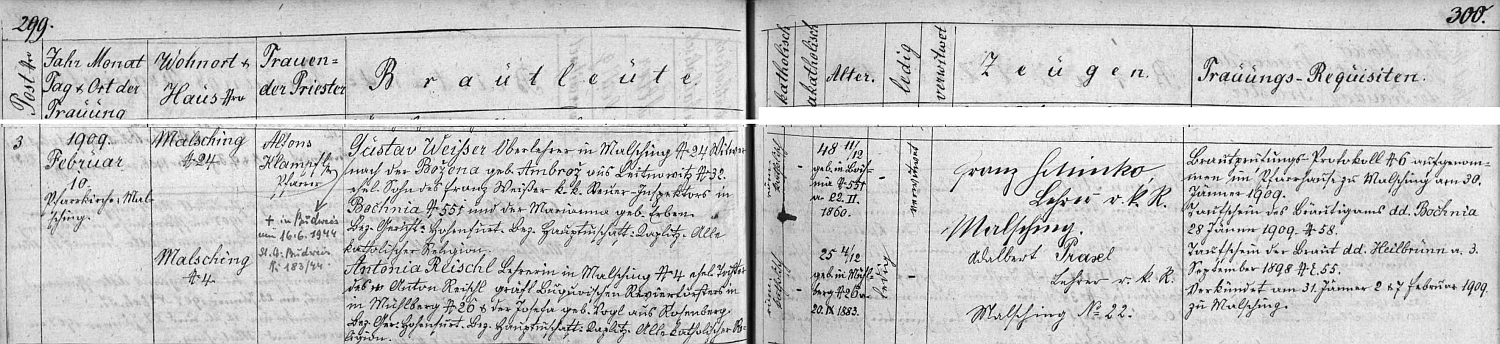 299.
300.
Post Nro
Jahr Monat
Tag & Ort der
Trauung
Wohnort &
Haus Nro
Trauen=
der Priester
Brautleute.
katholisch
akatholisch
Alter.
ledig
verwitwet
Zeugen.
Trauungs-Requisiten.
3
1909.
Februar
10.
Pfarrkirche Mal-
sching.
Malsching
# 24
Malsching
# 4
Alfons
Klampfl
Pfarrer
+ in Budweis
am 16.6.1944
St. A. Budweis
N: 183/44
Gustav Weißer Oberlehrer in Malsching # 24 Witwer
nach der Božena geb. Ambrož aus # 32.
ehel. Sohn des Franz Weißer k. k. Inspektors in
Bochnia # 551 und der Marianna geb. Erben
Bez. Gericht: Hohenfurt. Bez. Hauptmschaft: Kaplitz. Alle
katholischer Religion.
Antonia Reischl Lehrerin in Malsching # 4 ehel. Tochter
des Anton Reischl gräfl. Buquoischen Revierförsters in
in Mühlberg # 26 & der Josefa geb. Vogl aus Rosenberg.
Bez. Ger: Hohenfurt. Bez. Hauptmschaft: Kaplitz. Alle katholischer Re-
ligion.
48 11/12
geb. in Boch-
nia # 551
a. 22. II.
1860.
verwitwet
25 4/12
geb. in Mühl-
berg # 26 a.
20. IX 1883.
ledig
Franz
Lehrer r. k. R.
Malsching.
Adalbert Prasel
Lehrer r. k. R.
Malsching No 22.
Brautprüfungs-Protokoll # 6 aufgenom-
men im Pfarrhause zu Malsching am 30.
Jänner 1909.
Taufschein des Bräutigams dd. Bochnia
28 Jänner 1909. # 58.
Taufschein der Braut dd. Heilbrunn a. 3.
September 1898 # E. 55.
Verkündet am 31. Jänner 2 & 7 Februar 1909.
zu Malsching.